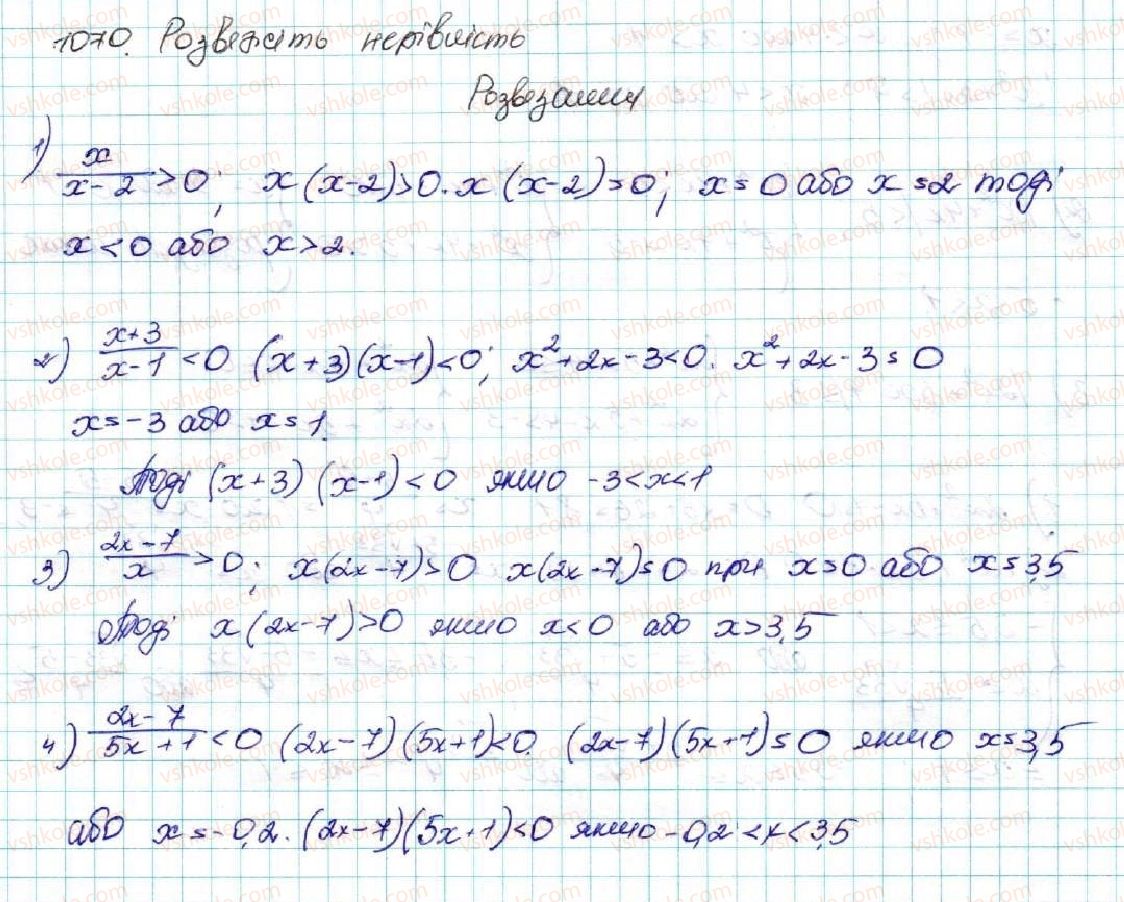 1070. Розвяжіть нерівність
Розвезання
1) x/(x-2) > 0; x(x-2)>0. x(x-2)=0; x=0 або x=2 тоді
x<0 або x>2.
2) (x+3)/(x-1) < 0 (x+3)(x-1)<0; x²+2x-3<0. x²+2x-3=0
x=-3 або x=1.
Тоді (x+3)(x-1)<0 якщо -3<x<1
3) (2x-7)/x > 0; x(2x-7)>0 x(2x-7)=0 при x=0 або x=3,5
Тоді x(2x-7)>0 якщо x<0 або x>3,5
4) (2x-7)/(5x+1) < 0 (2x-7)(5x+1)<0. (2x-7)(5x+1)=0 якщо x=3,5
або x=-0,2. (2x-7)(5x+1)<0 якщо -0,2<x<3,5
vshkole.com